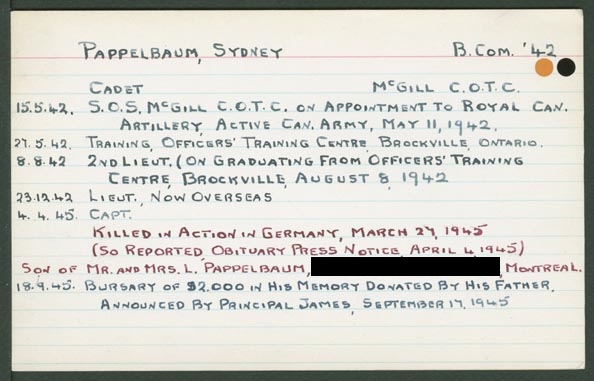 PAPPELBAUM, SYDNEY B.COM. '42
CADET McGILL C.O.T.C.
15.5.42. S.O.S. McGILL C.O.T.C. ON APPOINTMENT TO ROYAL CAN.
ARTILLERY, ACTIVE CAN. ARMY, MAY 11, 1942.
27.5.42. TRAINING, OFFICERS' TRAINING CENTRE, BROCKVILLE, ONTARIO.
8.8.42 2ND LIEUT. (ON GRADUATING FROM OFFICERS' TRAINING
CENTRE, BROCKVILLE, AUGUST 8, 1942
23.12.42 LIEUT., NOW OVERSEAS
4.4.45. CAPT.
KILLED IN ACTION IN GERMANY, MARCH 27, 1945
(SO REPORTED, OBITUARY PRESS NOTICE, APRIL 4, 1945)
SON OF MR. AND MRS. L. PAPPELBAUM, , MONTREAL.
18.9.45. BURSARY OF $2.000 IN HIS MEMORY DONATED BY HIS FATHER,
ANNOUNCED BY PRINCIPAL JAMES, SEPTEMBER 17, 1945